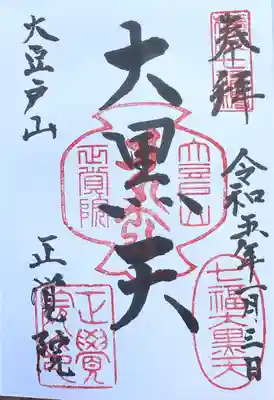 奉拝
令和五年一月三日
七福大黒天
大黒天
大豆戸山
正覚院
大豆戸山
正覚院
正覺院